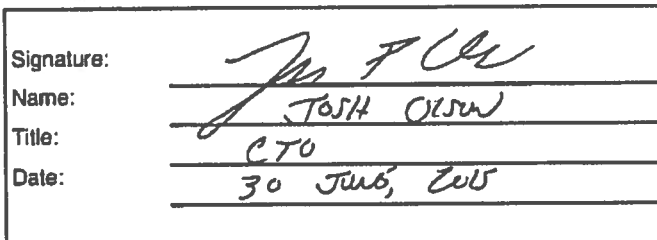 Signature:
Name: JOSH OLSON
Title: CTO
Date: 30 JUNE, 2015